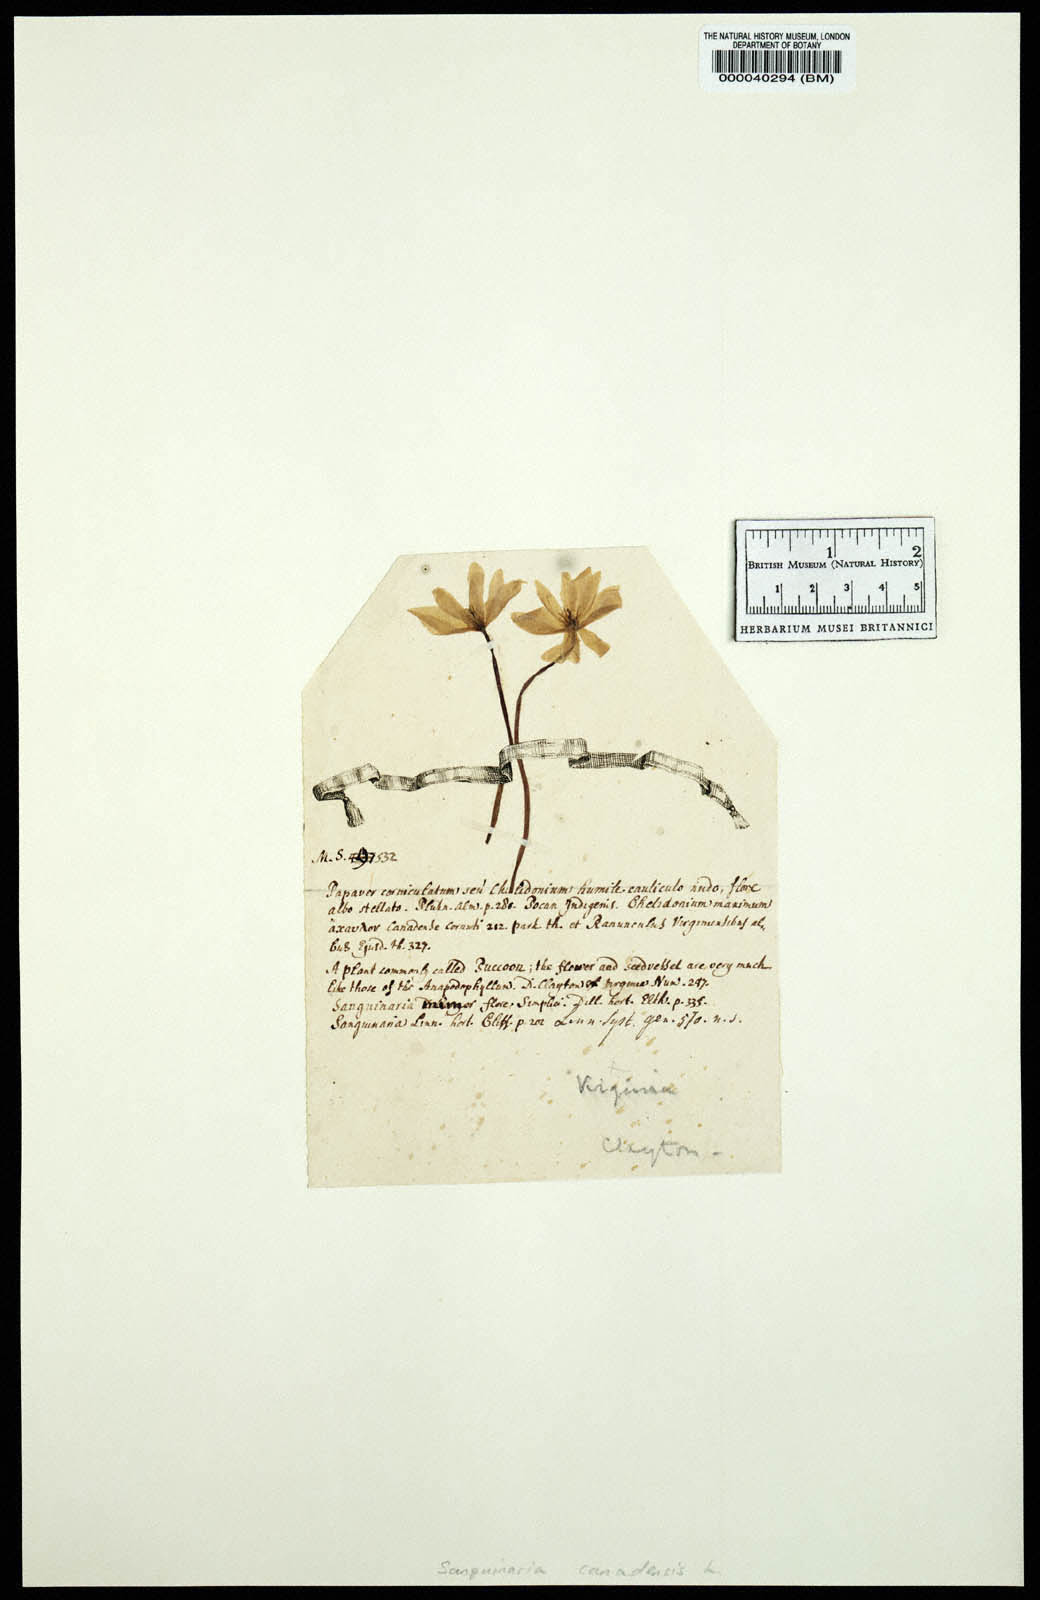 THE NATURAL HISTORY MUSEUM, LONDON
DEPARTMENT OF BOTANY
000040294 (BM)
1 2
BRITISH MUSEUM (NATURAL HISTORY)
1 2 3 4 5
HERBARIUM MUSEI BRITANNICI
M. S. 532
Papaver corniculatum seu Chelidonium humile cauliculo nudo, flore
albo stellato. Plukn. Alm. p. 280. Pocan Indigenis. Chelidonium maximum
Canadense Cornuti 212. park th. et Ranunculus Virginiensibus al-
bus Ejusd. th. 327.
A plant commonly called Puccoon; the flower and seedvessel are very much
like those of the Anapodophyllum. D. Clayton Num. 247.
Sanguinaria flore Simplici. Dill. hort. Elth. p. 335.
Sanguinaria Linn. hort. Cliff. p. 202 Linn. Syst. gen. 570. n. 1.
Virginia
Clayton -
Sanguinaria canadensis L.